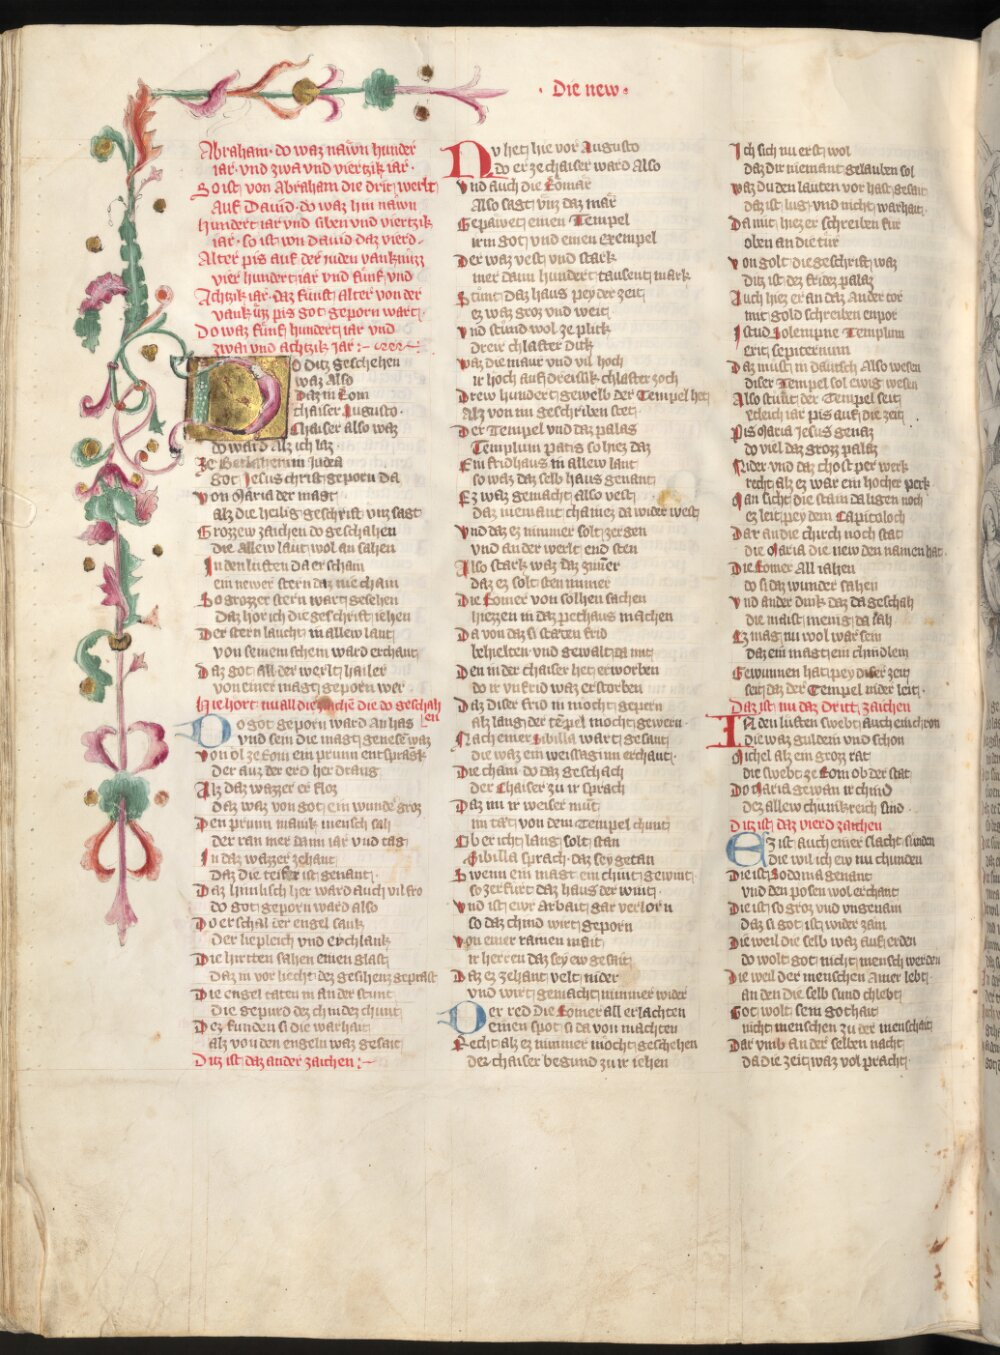 · Die new ·
Abraham · do waz nawn hunder
iar · vnd zwa vnd viertzik iar ·
So ist von Abraham die drit werlt
Auf Dauid · do waz hin nawn
hundert iar vnd siben vnd viertzik
iar · so ist von dauid daz vierd ·
Alter pis auf der iuden vanknuzz
vier hundert iar vnd funf vnd
Achtzik iar · daz funft alter von der
vanknuzz pis got geporn wart ·
Do waz funf hundert iar vnd
zwai vnd achtzik iar :~
Do ditz geschehen
waz also
Daz in Rom
chaiser Augusto ·
Chaiser also waz
do ward alz ich laz
Ze Bethlehem in Judea
got Jesus christ geporn da
Von Maria der magt
alz die heilig geschrift vns sagt
Grozzew zaichen do geschahen
die allew laut wol an sahen
In den luften da er schain
ein newer stern daz nie chain
So grozzer stern wart gesehen
Daz hor ich die geschrift iehen
Der stern laucht in allew lant
von seinem schein ward erchant
Daz got all der werlt hailer
von einer magt geporn wer
Hie hort nu all die zaiche die do geschah
en
Do got geporn ward an has
vnd sein die magt genese waz
Von ol ze Rom ein prunn entsprang
der auz der erd her drang
Alz daz wazzer er floz
daz waz von got ein wunder groz
Den prunn manik mensch sah
der ran mer dann iar vnd tag
In daz wazzer zehant
daz die teifer ist genant ·
Daz himlisch her ward auch vil fro
do got geporn ward also
Do erschal der engel sank
der lieplich vnd erchlank
Die hirtten sahen einen glast
daz in vor liecht dez gesihenz geprast
Die engel taten in an der stunt
die gepurd dez chindez chunt
Dez funden si die warhait
alz von den engeln waz gesait
Ditz ist daz ander zaichen :~
Nv het hie vor Augusto
do er ze chaiser ward Also
Vnd auch die Romar
Also sagt vns daz mar
Gepawet einen Tempel
irm got vnd einen exempel
Der waz vest vnd stark
mer dann hundert tausent mark
Stunt daz haus pey der zeit
ez waz groz vnd weit
Vnd stund wol ze plick
dreir chlafter dick
Waz die maur vnd vil hoch
ir hoch auf dreissik chlafter zoch
Drew hundert gewelb der Tempel het
Alz von im geschriben stet
Der Tempel vnd daz palas
Templum patis so hiez daz
Ein fridhaus in allew lant
so waz daz selb haus genant
Ez waz gemacht also vest
daz niemant chainez da wider west
Vnd daz ez nimmer solt zergen
vnd an der werlt end sten
Also stark waz daz zimer
daz ez solt sten immer
Die Romer von solhen sachen
hiezzen in daz pethaus machen
Da von daz si staten frid
behielten vnd gewalt da mit
Den in der chaiser het erworben
do ir vnfrid waz erstorben
Daz diser frid in mocht gepern
alz lang der tepel mocht gewern
Nach einer Sibilla wart gesant
die waz ein weissaginn erchant ·
Die cham do daz geschach
der Chaiser zu ir sprach
Daz im ir weiser mut
im tat von dem Tempel chunt
Ob er icht lang solt stan
Sibilla sprach · daz sey getan
Swenn ein magt ein chint gewint
so zerfurt daz haus der wint ·
Vnd ist ewr arbait gar verlorn
so daz chind wirt geporn
Von einer rainen mait
ir herren daz sey ew gesait
Daz ez zehant velt nider
vnd wirt gemacht nimmer wider
Der red die Romer all erlachten
einen spot si da von machten
Recht alz ez nimmer mocht geschehen
dez chaiser begund zu ir iehen
Ich sich nu erst wol
daz dir niemant gelauben sol
Waz du den lauten vor hast gesait
daz ist lug vnd nicht warhait
Da mit hiez er schreiben fur
oben an die tur
Von golt die geschrift waz
ditz ist dez fridez palaz
Auch hiez er an daz ander tor
mit gold schreiben enpor
Istud solempne Templum
erit sepiternum
Daz must in dautsch also wesen
diser Tempel sol ewig wesen
Also stunt der Tempel seit
etleich iar pis auf die zeit
Pis Maria Jesus genaz
do viel daz groz palaz
Nider vnd daz chost per werk
recht alz ez war ein hocher perk
Man sicht die stain da ligen noch
ez leit pey dem Capitoloch
Dar an die chirch noch stat
die Maria die new den namen hat ·
Die Romer all iahen
do si daz wunder sahen
Vnd ander dink daz da geschah
die maist menig da sah
Ez mag nu wol war sein
daz ein magt ein chindlein
Gewunnen hat pey diser zeit
seit daz der Tempel nider leit ·
Daz ist nu daz dritt zaichen
In den luften swebt auch ein chron
die waz guldein vnd schon
Michel alz ein groz rat
die swebt ze Rom ob der stat
Do Maria gewan ir chind
dez allew chunikreich sind ·
Ditz ist daz vierd zaichen
Ez ist auch einer slacht sunden
die wil ich ew nu chunden
Die ist Sodoma genant
vnd den posen wol erchant
Die ist so groz vnd vngenam
daz si got ist wider zam
Die weil die selb waz auf erden
do wolt got nicht mensch werden
Die weil der menschen ainer lebt
an den die selb sund chlebt
Got wolt sein gothait
nicht menschen zu der menschait
Dar vmb an der selben nacht
da die zeit waz vol pracht ·